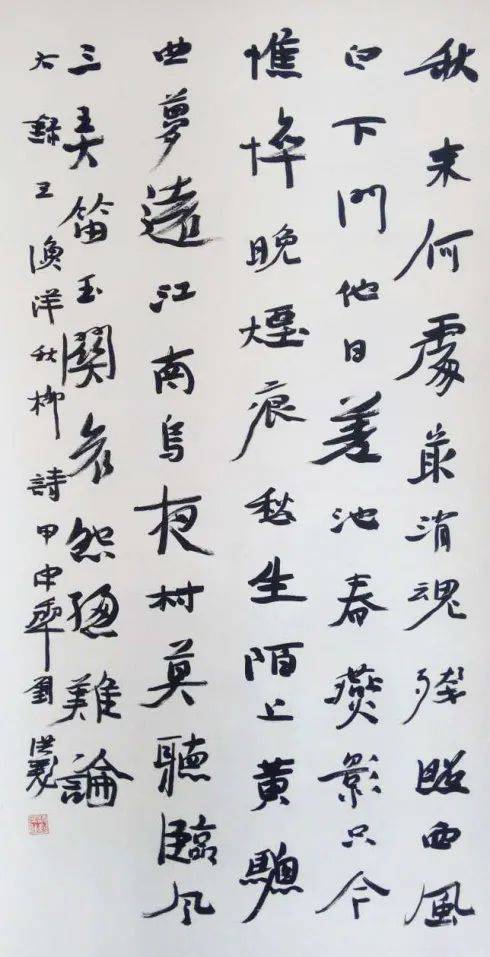 秋来何處最消魂殘照西風
白下門他日差池春燕影只今
憔悴晚煙痕愁生陌上黄驄
曲夢遠江南烏夜村莫聽臨风
三弄笛玉關哀怨總難論
右録王漁洋秋柳詩甲申年劉洪彪